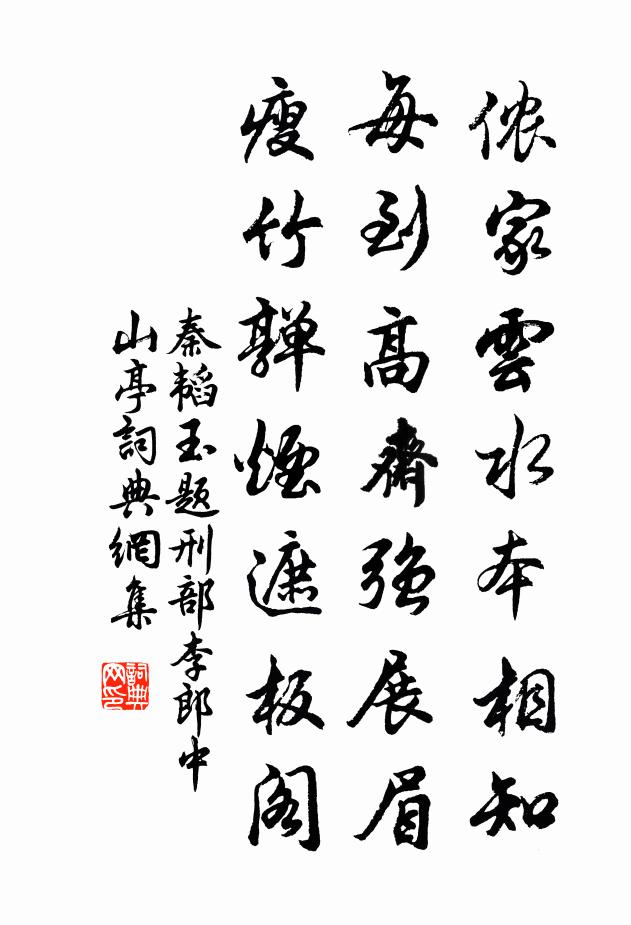 侬家雲水本相知
每到高齋強展眉
瘦竹嚲煙遮板阁
秦韬玉題刑部李郎中
山亭詞典網集
詞典網印